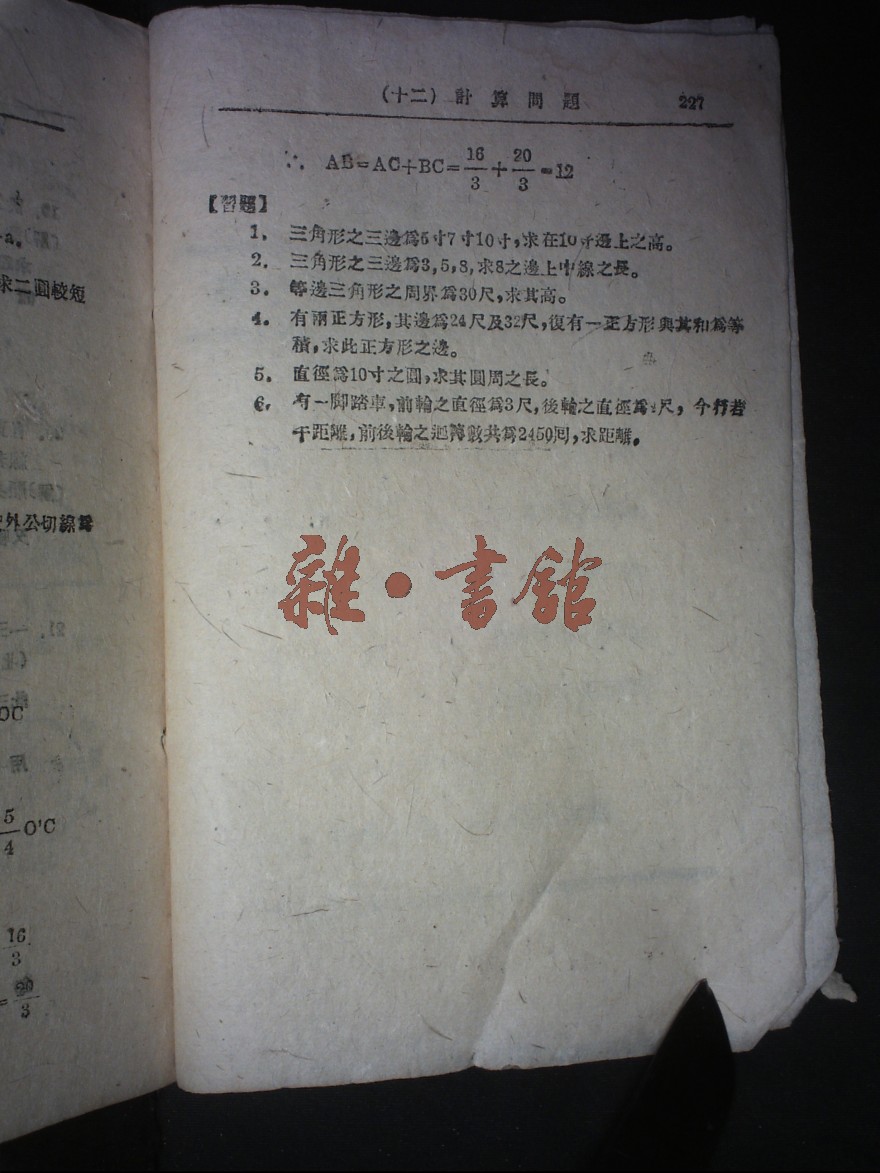 (十二) 計算問題 227
∵ AB=AC+BC=16/3+20/3=12
【習題】
1. 三角形之三邊爲5寸7寸10寸,求在10寸邊上之高。
2. 三角形之三邊爲3,5,8,求8之邊上中線之長。
3. 等邊三角形之周界爲30尺,求其高。
4. 有兩正方形,其邊爲24尺及32尺,復有一正方形與其和爲等
積,求此正方形之邊。
5. 直徑爲10寸之圓,求其圓周之長。
6. 有一脚踏車,前輪之直徑爲3尺,後輪之直徑爲 尺, 今行若
干距離,前後輪之迴轉數共爲2450回,求距離。
雜·書館
a。
求二圓校短
外公切線爲
OC
5/4 O'C
16/3
=20/3